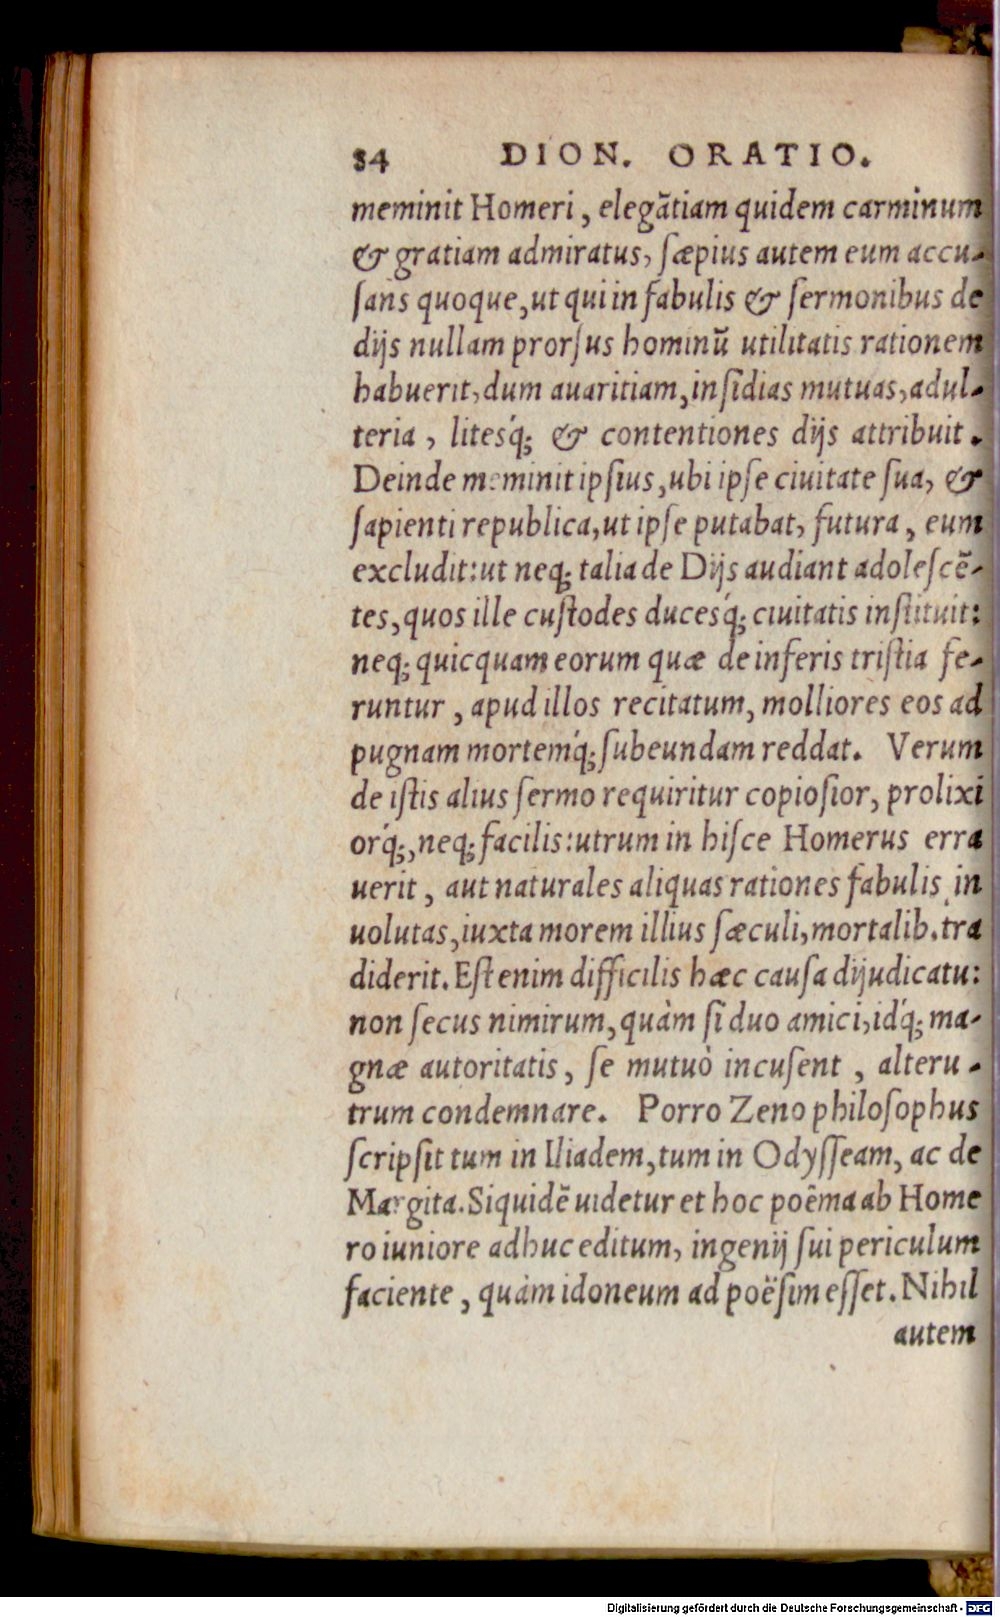 84 DION. ORATIO.
meminit Homeri, elegātiam quidem carminum
& gratiam admiratus, sæpius autem eum accu-
ſans quoque, ut qui in fabulis & ſermonibus de
dijs nullam prorſus hominū utilitatis rationem
habuerit, dum auaritiam, inſidias mutuas, adul-
teria, litesq́; & contentiones dijs attribuit.
Deinde meminit ipſius, ubi ipſe ciuitate ſua, &
ſapienti republica, ut ipſe putabat, futura, eum
excludit: ut neq; talia de Dijs audiant adoleſcē-
tes, quos ille cuſtodes ducesq́; ciuitatis inſtituit:
neq; quicquam eorum quæ de inferis triſtia fe-
runtur, apud illos recitatum, molliores eos ad
pugnam mortemq́; ſubeundam reddat. Verum
de iſtis alius ſermo requiritur copioſior, prolixi
orq́;, neq; facilis: utrum in hiſce Homerus erra
uerit, aut naturales aliquas rationes fabulis in
uolutas, iuxta morem illius ſæculi, mortalib. tra
diderit. Eſt enim difficilis hæc cauſa dijudicatu:
non ſecus nimirum, quàm ſi duo amici, idq́; ma-
gnæ autoritatis, ſe mutuò incuſent, alteru-
trum condemnare. Porro Zeno philoſophus
ſcripſit tum in Iliadem, tum in Odyſſeam, ac de
Margita. Siquidē uidetur et hoc poêma ab Home
ro iuniore adhuc editum, ingenij ſui periculum
faciente, quàm idoneum ad poëſim eſſet. Nihil
autem
Digitalisierung gefördert durch die Deutsche Forschungsgemeinschaft - DFG